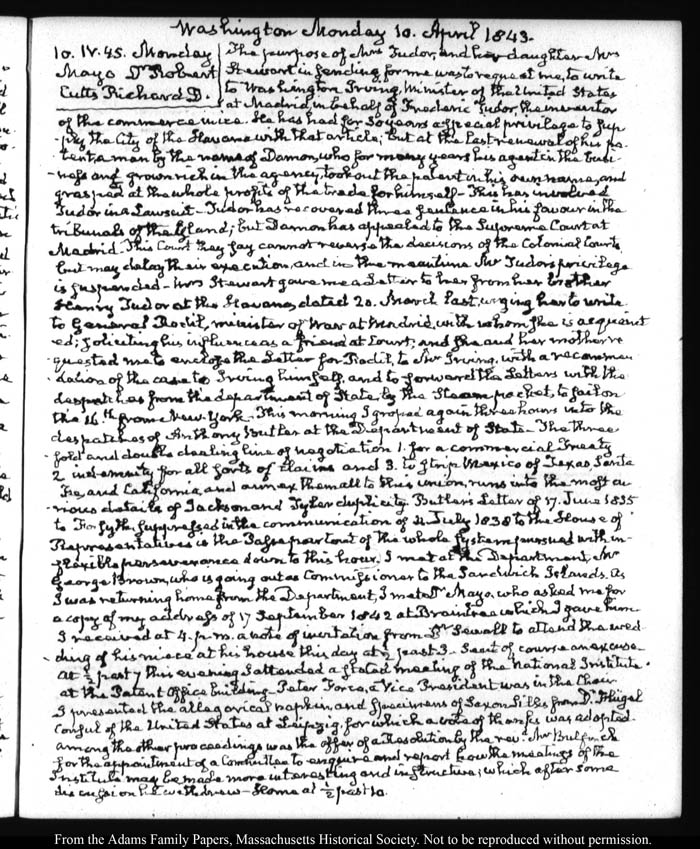 Washington Monday 10. April 1843.
10. IV. 45. Monday
Mayo Dr Robert
Cutts Richard D.
The purpose of Mrs Tudor, and her daughter Mrs
Stewart in sending for me was to request me, to write
to Washington Irving, Minister of the United States
at Madrid, in behalf of Frederic Tudor, the inventor
of the commerce in ice. He has had for 30 years a special privilege to sup-
-ply the City of the Havana with that article; but at the last renewal of his pa-
tent, a man by the name of Damon, who for many years his agent in the busi-
-ness and grown rich in the agency, took out the patent in his own name, and
grasped at the whole profits of the trade for himself—This has involved
Tudor in a Lawsuit—Tudor has recovered three sentences in his favour in the
tribunals of the Island; but Damon has appealed to the Supreme Court at
Madrid. This Court they say cannot reverse the decisions of the Colonial Courts
but may delay their execution, and in the meantime Mr Tudor's privilege
is suspended—Mrs Stewart gave me a Letter to her from her brother
Henry Tudor at the Havana, dated 20. March last, urging her to write
to General Rodil, minister of War at Madrid, with whom she is acquaint
ed; soliciting his influence as a friend at Court; and she and her mother re
quested me to enclose the Letter for Rodil, to Mr Irving, with a recommen
dation of the case to Irving himself, and to forward the Letters with the
despatches from the department of State, by the Steam packet, to sail on
the 16th from New-York. This morning I groped again three hours into the
despatches of Anthony Butler at the Department of State—The three
fold and double dealing line of negotiation 1. for a commercial Treaty
2 indemnity for all sorts of Claims and 3. to strip Mexico of Texas, Santa
Fe, and California, and annex them all to this union, runs into the most cu
-rious details of Jackson and Tyler duplicity. Butler's Letter of 17. June 1835
to Forsyth, suppressed in the communication of July 1838 to the House of
Representatives is the Passe partout of the whole system pursued with in-
flexible perseverance down to this hour. I met at the Department, Mr
George Brown, who is going out as Commissioner to the Sandwich Islands. As
I was returning home from the Department, I met Dr Mayo, who asked me for
a copy of my address of 17 September 1842 at Braintree which I gave him
I received at 4. p.m. a note of invitation from Dr Sewall to attend the wed
-ding of his niece at his house this day at ½ past 3—Sent of course an excuse—
At ½ past 7 this evening I attended a stated meeting of the National Institute.
at the Patent Office building—Peter Force, a Vice President was in the Chair
I presented the allegorical napkin, and specimens of Saxon silks from Dr Flügel
Consul of the United States at Leipzig, for which a vote of thanks was adopted.
among the other proceedings was the offer of a Resolution by the revd Mr Bulfinch
for the appointment of a Committee to enquire and report how the meetings of the
Institute may be made more interesting and instructive; which after some
discussion he withdrew—Home at ½ past 10.
From the Adams Family Papers, Massachusetts Historical Society. Not to be reproduced without permission.